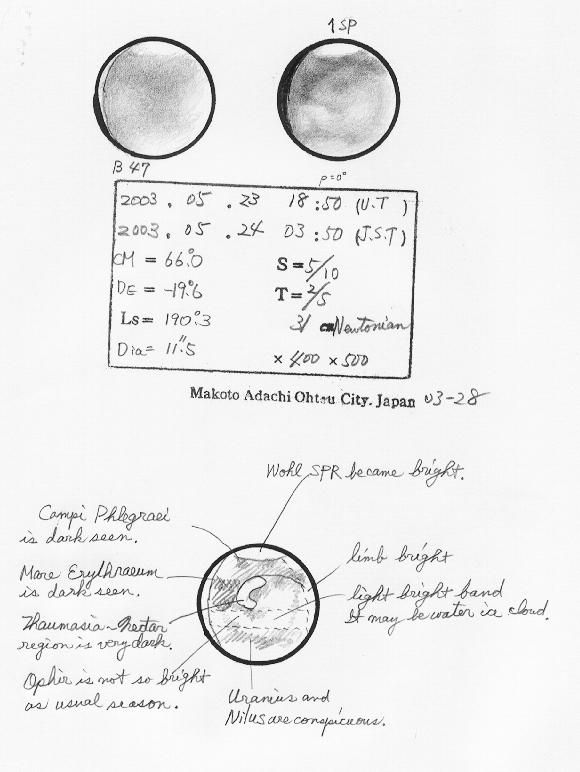 1 SP
B 47
P=0°
2003. 05. 23 18:50 (U.T)
2003. 05. 24 03:50 (J.S.T)
CM = 66°.0 S=5/10
DE = -19°.6 T=2/5
Ls= 190°.3 31 cm Newtonian
Dia= 11".5 ×400 ×500
Makoto Adachi Ohtsu City. Japan 03-28
Wohl SPR became bright.
Campi Phlegraei
is dark seen.
limb bright
Mare Erythraeum
is dark seen.
light bright band
It may be water ice cloud.
Thaumasia~Nectar
region is very dark.
Ophir is not so bright
as usual season.
Uranius and
Nilus are conspicuous.